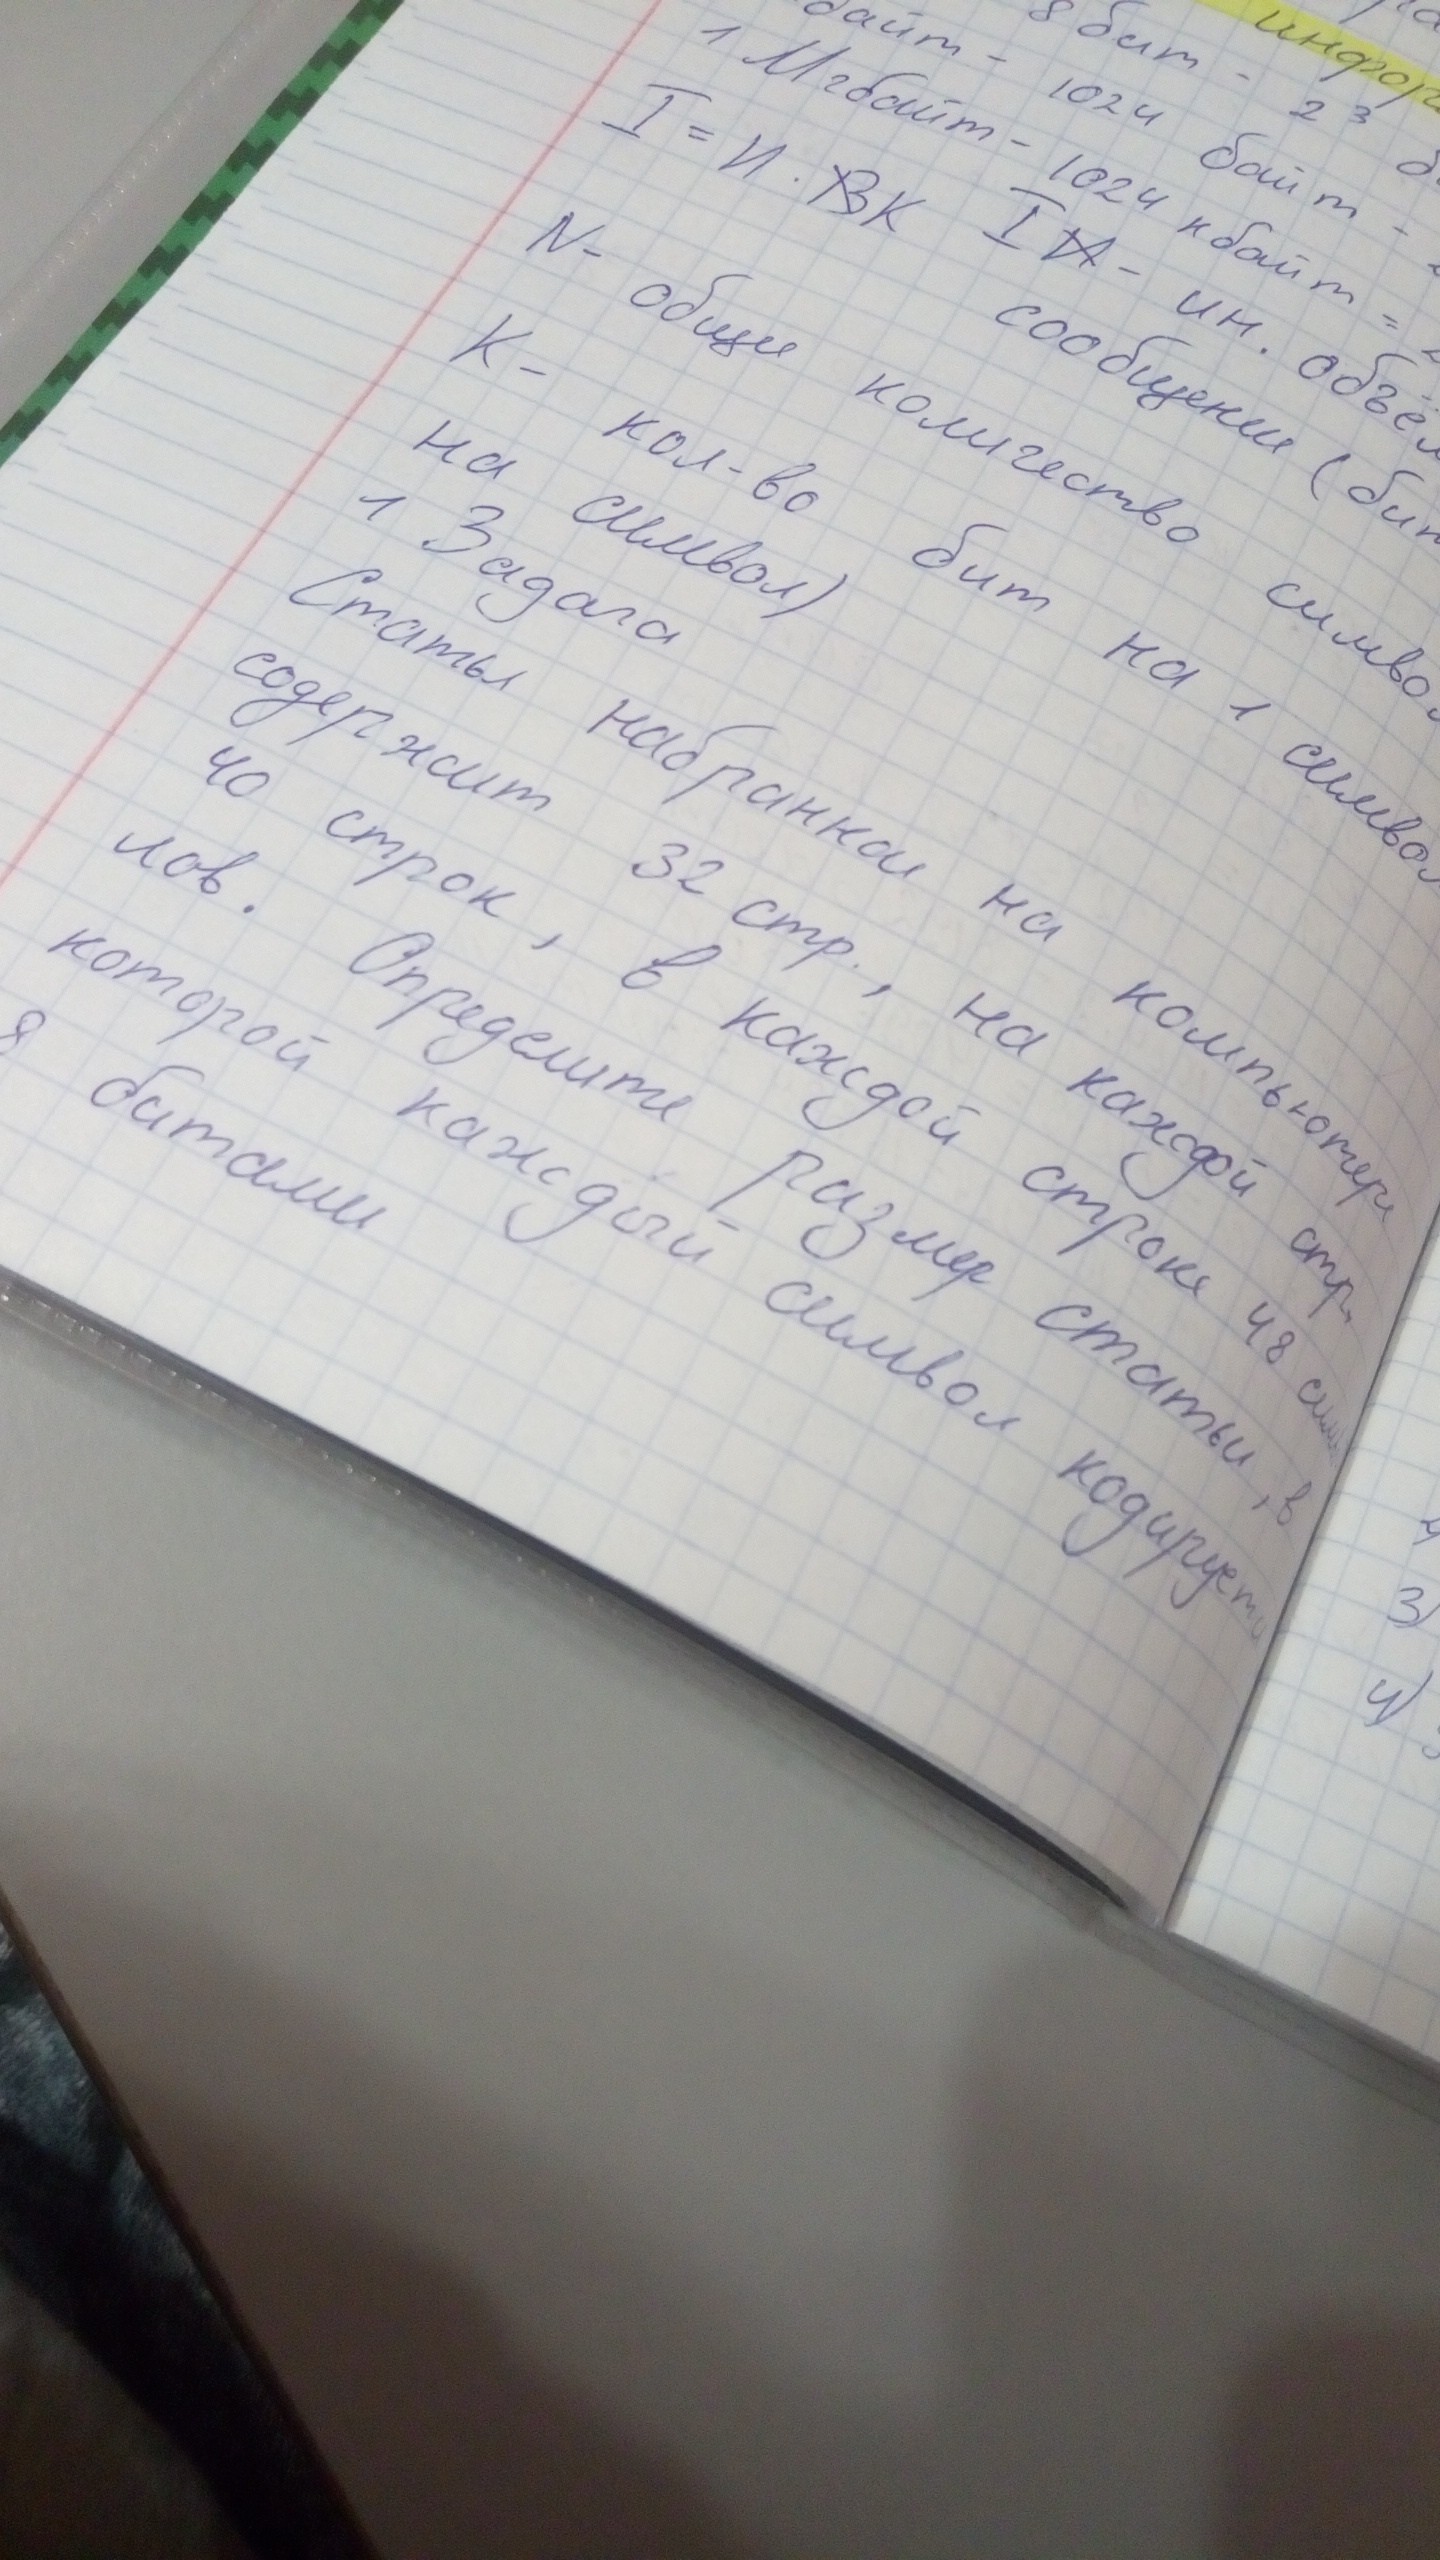 инфор
байт - 8 бит - 2 3
1 Мгбайт - 1024 байт -
I = И . ВК 1024 кбайт =
I А - ин. объём
N - общие сообщение (бит
К - количество символ
кол-во бит на 1 символ
на символ)
1 Задача
Статья набранная на компьютере
содержит 32 стр., на каждой стр.
40 строк, в каждой строке 48 сим
лов. Определите размер статьи, в
которой каждый символ кодирует
8 битами
3)
4)